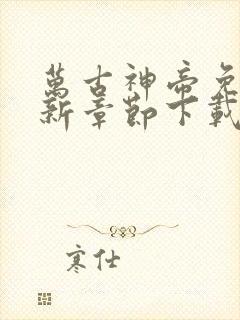 萬古神帝免
新章節下載
寒仕